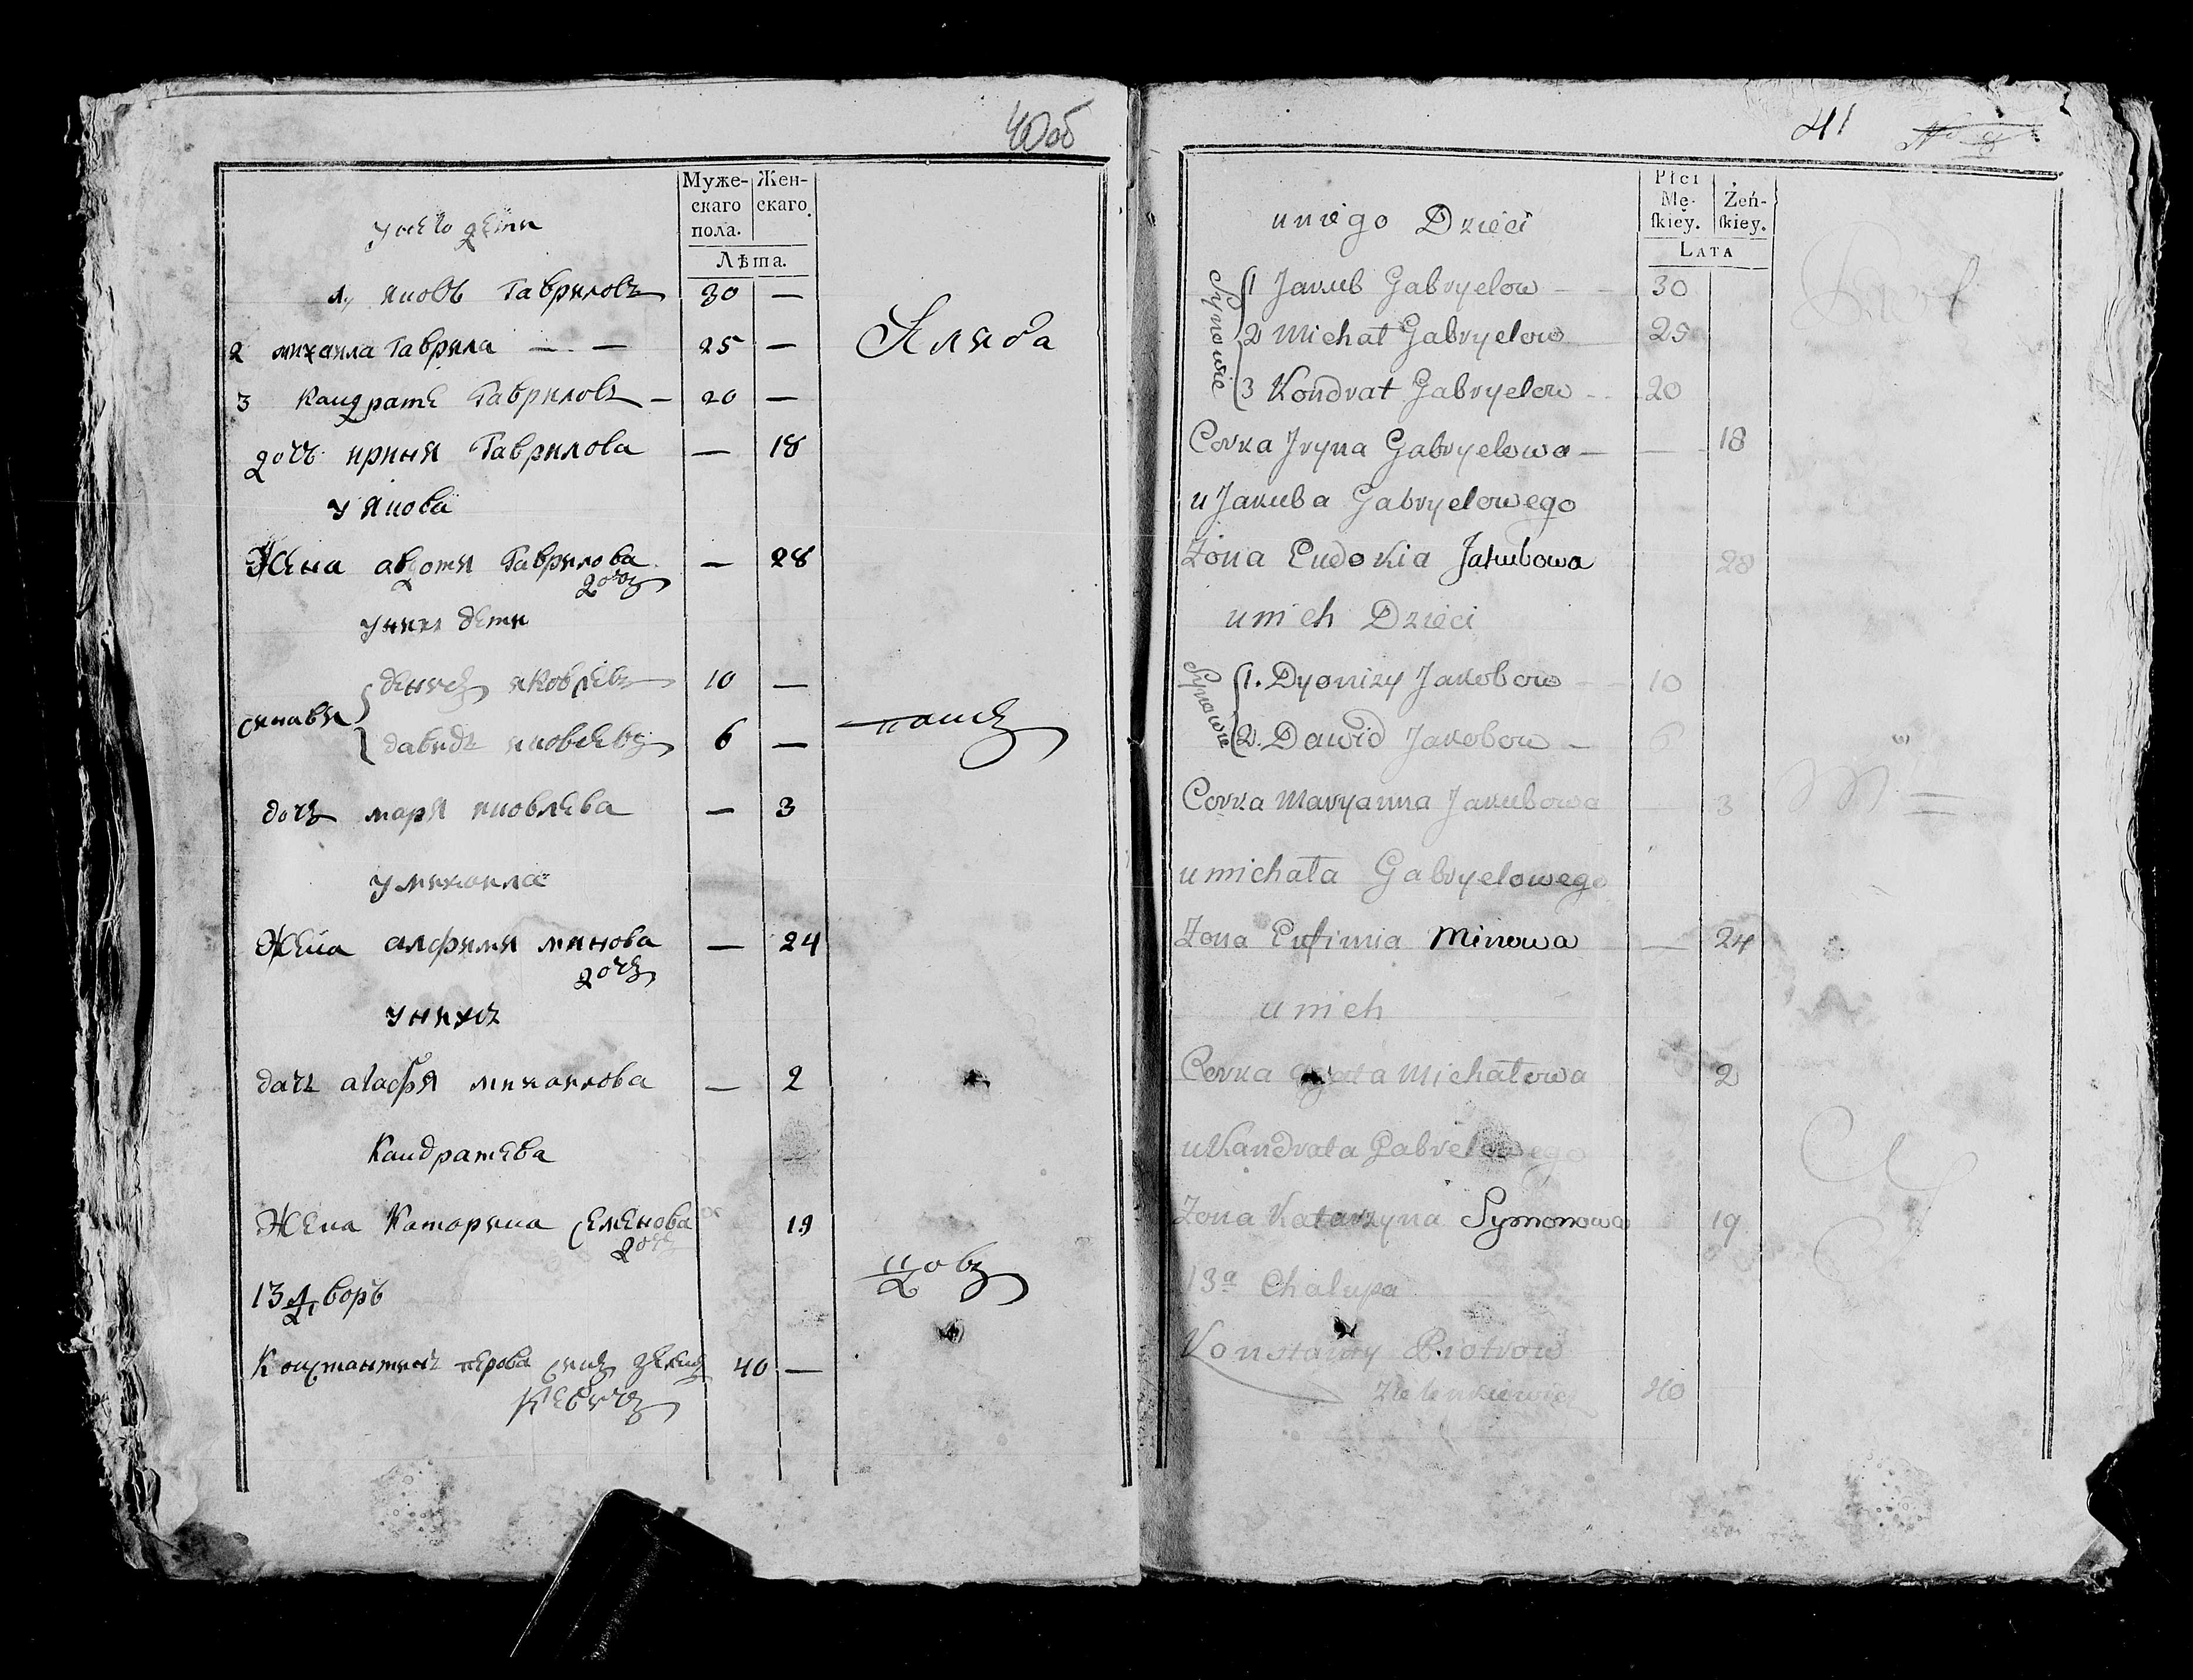 40об
Муже- Жен-
скаго скаго.
пола.
Лѣта.
у него дети
1, яковъ Гавриловъ 30 —
2 михаила Гаврила — — 25 —
3 Кандратъ Гавриловъ — 20 —
дочъ ириня Гаврилова — 18
у якова
Жена авдотя Гаврилова — 28
дочъ
у них дети
синавя
денисъ яковлевъ 10 —
давидъ яковлевъ 6 —
дочъ маря яковлева — 3
у михаила
Жена алфимя минова — 24
дочъ
у нихъ
дачъ агафя михаилова — 2
Кандратева
Жена Катарина Семенова 19
дочъ
13 дворъ
Константинъ перова синъ зелен 40 —
кевичъ
41
Płci
Mę- Żeń-
ſkiey. ſkiey.
LATA
u niego Dzieci
Synowie
1 Jakub Gabryelow — 30
2 Michał Gabryelow 25
3 Kondrat Gabryelow 20
Corka Jryna Gabryelowa — — 18
u Jakuba Gabryelowego
Zona Eudokia Jakubowa 28
u nich Dzieci
Synowie
1. Dyonizy Jakobow 10
2. Dawid Jakobow — 6
Corka Maryanna Jakubowa 3
u michała Gabryelowego
Zona Eufimia Minowa — 24
u nich
Corka Agata Michałowa 2
u Kandrata Gabrelowego
Zona Katarzyna Symonowa 19
13a Chalupa
Konstanty Piotrow
Zielenkiewicz 40